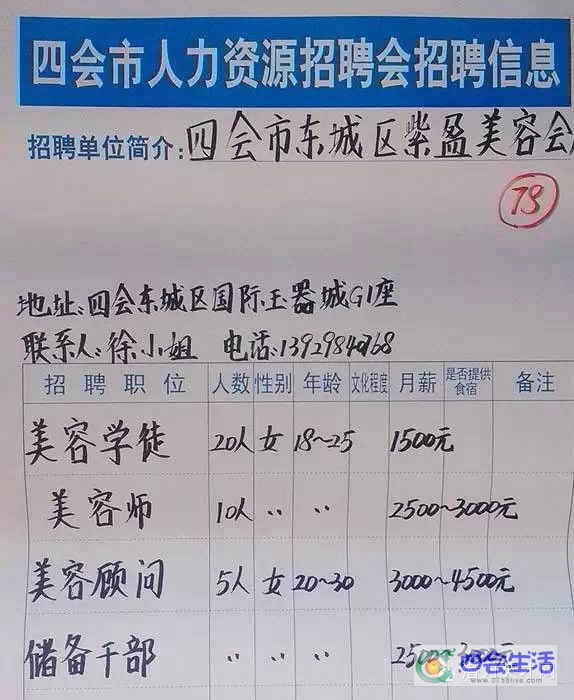 四会市人力资源招聘会招聘信息
招聘单位简介:四会市东城区紫盈美容会
78
地址:四会东城区国际玉器城G1座
联系人:徐小姐 电话:13929840768
招聘职位 人数 性别 年龄 文化程度 月薪 是否提供食宿 备注
美容学徒 20人 女 18~25 1500元
美容师 10人 〃 〃 2500~3000元
美容顾问 5人 女 20~30 3000~4500元
储备干部 〃 〃 〃 2500~3000元
四会生活
www.0758live.com